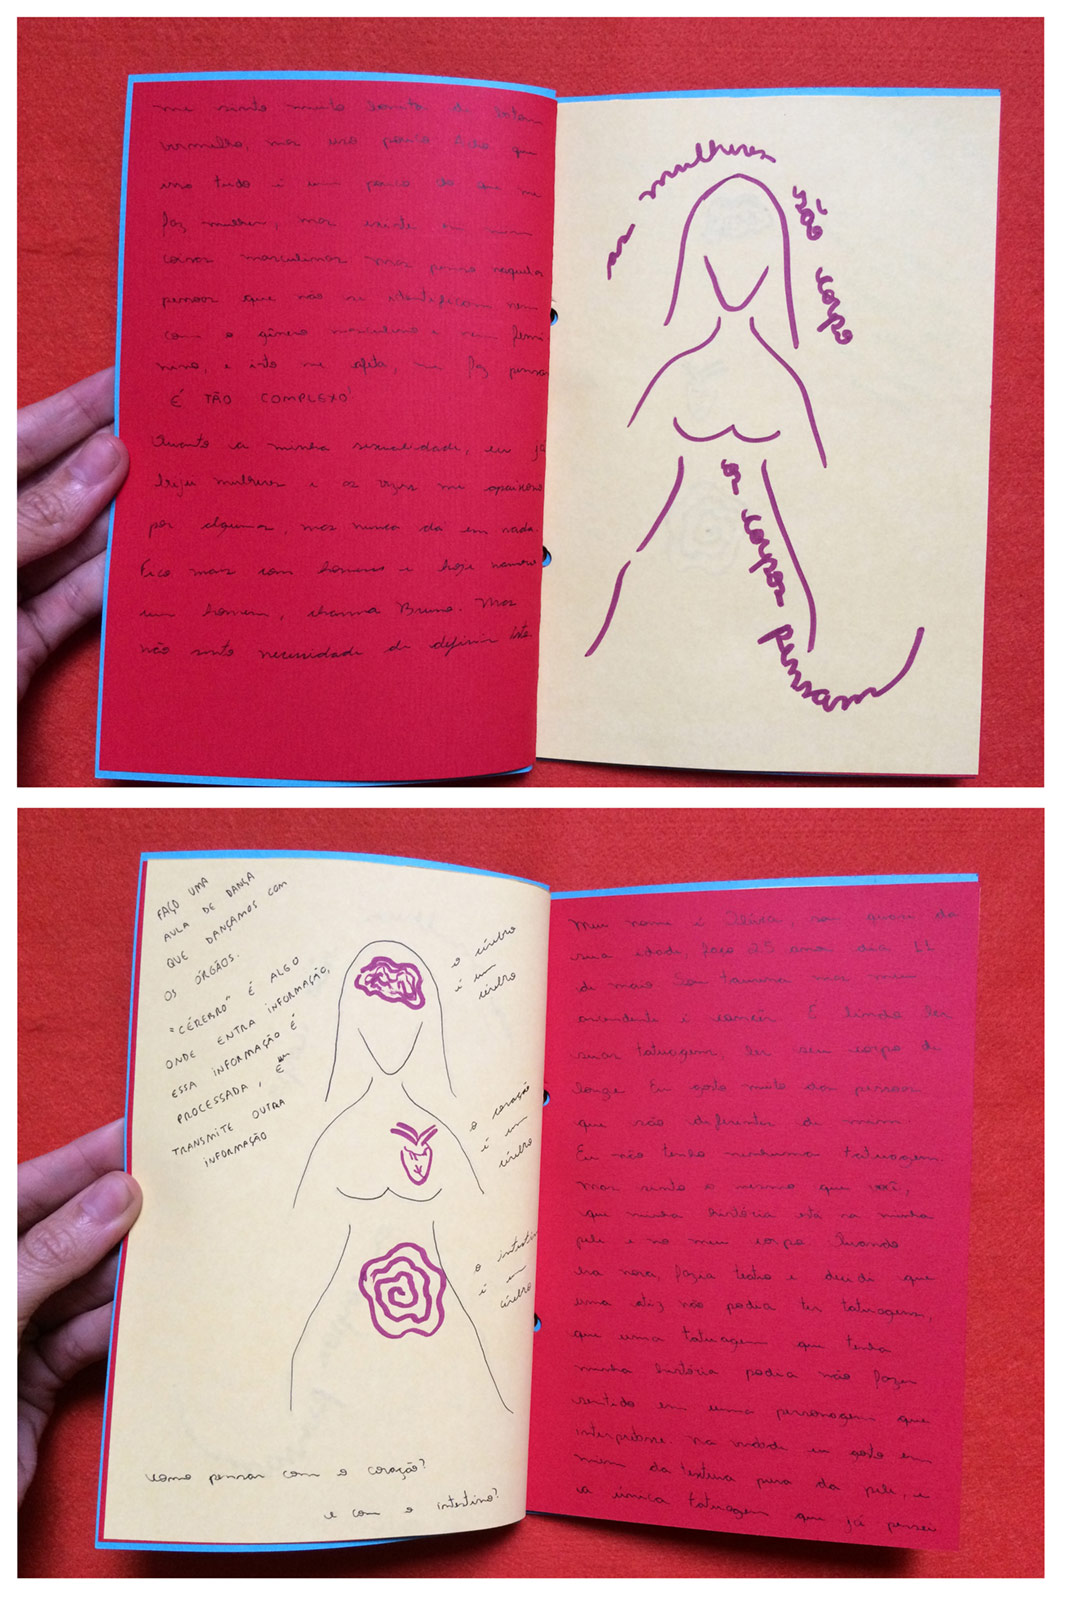 me sinto muito bonita de batom
vermelho, mas uso pouco. Acho que
isso tudo é um pouco do que me
faz mulher, mas existe em mim
coisas masculinas. Mas penso naquelas
pessoas que não se identificam nem
com o gênero masculino e nem femi
nino, e isto me afeta, me faz pensar
É TÃO COMPLEXO!
Quanto a minha sexualidade, eu já
beijei mulheres e as vezes me apaixono
por algumas, mas nunca dá em nada.
Fico mais com homens e hoje namoro
um homem, chama Bruno. Mas
não sinto necessidade de definir isto.
as mulheres são corpo
os corpos pensam
FAÇO UMA
AULA DE DANÇA
QUE DANÇAMOS COM
OS ÓRGÃOS.
"CÉREBRO" É ALGO
ONDE ENTRA INFORMAÇÃO,
ESSA INFORMAÇÃO É
PROCESSADA, E em
TRANSMITE OUTRA
INFORMAÇÃO
o cérebro
é um
cérebro
o coração
é um
cérebro
o intestino
é um
cérebro
como pensar com o coração?
e com o intestino?
Meu nome é, sou quase da
sua idade, faço 25 anos dia 11
de maio. Sou taurina mas meu
ascendente é câncer. É lindo ler
suas tatuagens, ler seu corpo de
longe. Eu gosto muito das pessoas
que são diferentes de mim.
Eu não tenho nenhuma tatuagem.
Mas sinto o mesmo que você,
que minha história está na minha
pele e no meu corpo. Quando
era nova, fazia teatro e decidi que
uma atriz não podia ter tatuagens,
que uma tatuagem que tenha
minha história podia não fazer
sentido em uma personagem que
interpretasse. Na verdade eu gosto em
mim da textura pura da pele, e
a única tatuagem que já pensei